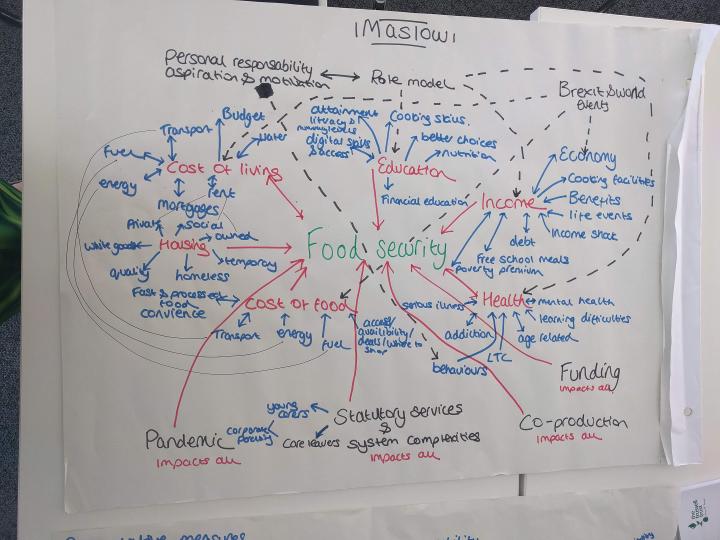 Maslow
Personal responsability
aspiration & motivation
Role model
Brexit & world
Events
Budget
Transport
water
Fuel
Cost of living
energy
rent
mortgages
attainment
literacy &
digital skills
& access
Cooking skills.
better choices
nutrition
Education
Financial education
Economy
Cooking facilities
Income
Benefits
life events
Income shock
debt
Free school meals
poverty premium
Private
social
owned
White goods
Housing
temporay
quality
homeless
Food security
Fast & processed
food
convience
Cost of food
Transport
energy
fuel
access/
availibility/
deals/where to
shop
serious illness
Health
mental health
learning difficulties
age related
addiction
LTC
behaviours
Funding
Impacts all
young
carers
Statutory services
&
system complexities
Impacts all
corporate
parents
Care leavers
Pandemic
Impacts all
Co-production
Impacts all
measures